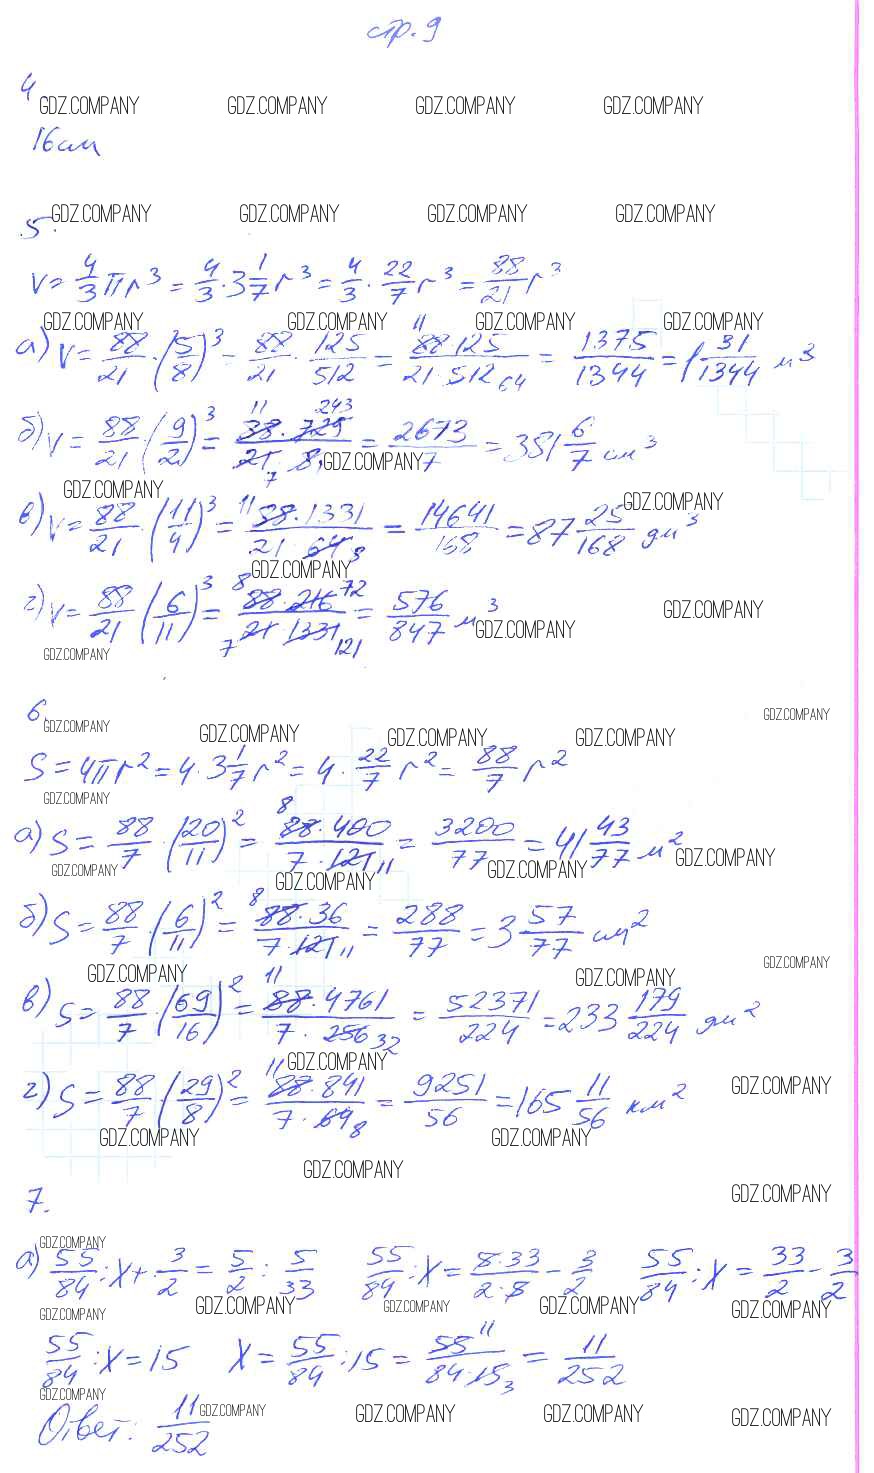 стр. 9
4
GDZ.COMPANY GDZ.COMPANY GDZ.COMPANY GDZ.COMPANY
16см
5.
GDZ.COMPANY GDZ.COMPANY GDZ.COMPANY GDZ.COMPANY
V = 4/3 π r³ = 4/3 · 3 1/7 r³ = 4/3 · 22/7 r³ = 88/21 r³
GDZ.COMPANY GDZ.COMPANY GDZ.COMPANY GDZ.COMPANY
а) V = 88/21 · (5/8)³ = 88/21 · 125/512 = 11 88·125/21·512 64 = 1375/1344 = 1 31/1344 м³
б) V = 88/21 · (9/2)³ = 11 243 38·729/21·8 7 = 2673/7 = 381 6/7 см³
GDZ.COMPANY
GDZ.COMPANY GDZ.COMPANY
в) V = 88/21 · (11/4)³ = 11 88·1331/21·64 8 = 14641/168 = 87 25/168 дм³
GDZ.COMPANY
г) V = 88/21 · (6/11)³ = 8 88·216 72/7 21·1331 121 = 576/847 м³
GDZ.COMPANY
GDZ.COMPANY
GDZ.COMPANY
6.
GDZ.COMPANY
GDZ.COMPANY GDZ.COMPANY GDZ.COMPANY GDZ.COMPANY
S = 4πr² = 4 · 3 1/7 r² = 4 · 22/7 r² = 88/7 r²
GDZ.COMPANY
а) S = 88/7 · (20/11)² = 8 88·400/7·121 11 = 3200/77 = 41 43/77 м²
GDZ.COMPANY
GDZ.COMPANY GDZ.COMPANY GDZ.COMPANY
б) S = 88/7 · (6/11)² = 8 88·36/7·121 11 = 288/77 = 3 57/77 см²
GDZ.COMPANY
GDZ.COMPANY GDZ.COMPANY
в) S = 88/7 · (69/16)² = 11 88·4761/7·256 32 = 52371/224 = 233 179/224 дм²
GDZ.COMPANY
г) S = 88/7 · (29/8)² = 11 88·841/7·64 8 = 9251/56 = 165 11/56 км²
GDZ.COMPANY
GDZ.COMPANY GDZ.COMPANY
GDZ.COMPANY
7.
GDZ.COMPANY
GDZ.COMPANY
а) 55/84 : X + 3/2 = 5/2 : 5/33 55/84 : X = 5·33/2·5 - 3/2 55/84 : X = 33/2 - 3/2
GDZ.COMPANY GDZ.COMPANY GDZ.COMPANY GDZ.COMPANY GDZ.COMPANY
55/84 : X = 15 X = 55/84 : 15 = 55 11/84·15 3 = 11/252
GDZ.COMPANY
Ответ: 11/252
GDZ.COMPANY GDZ.COMPANY GDZ.COMPANY GDZ.COMPANY